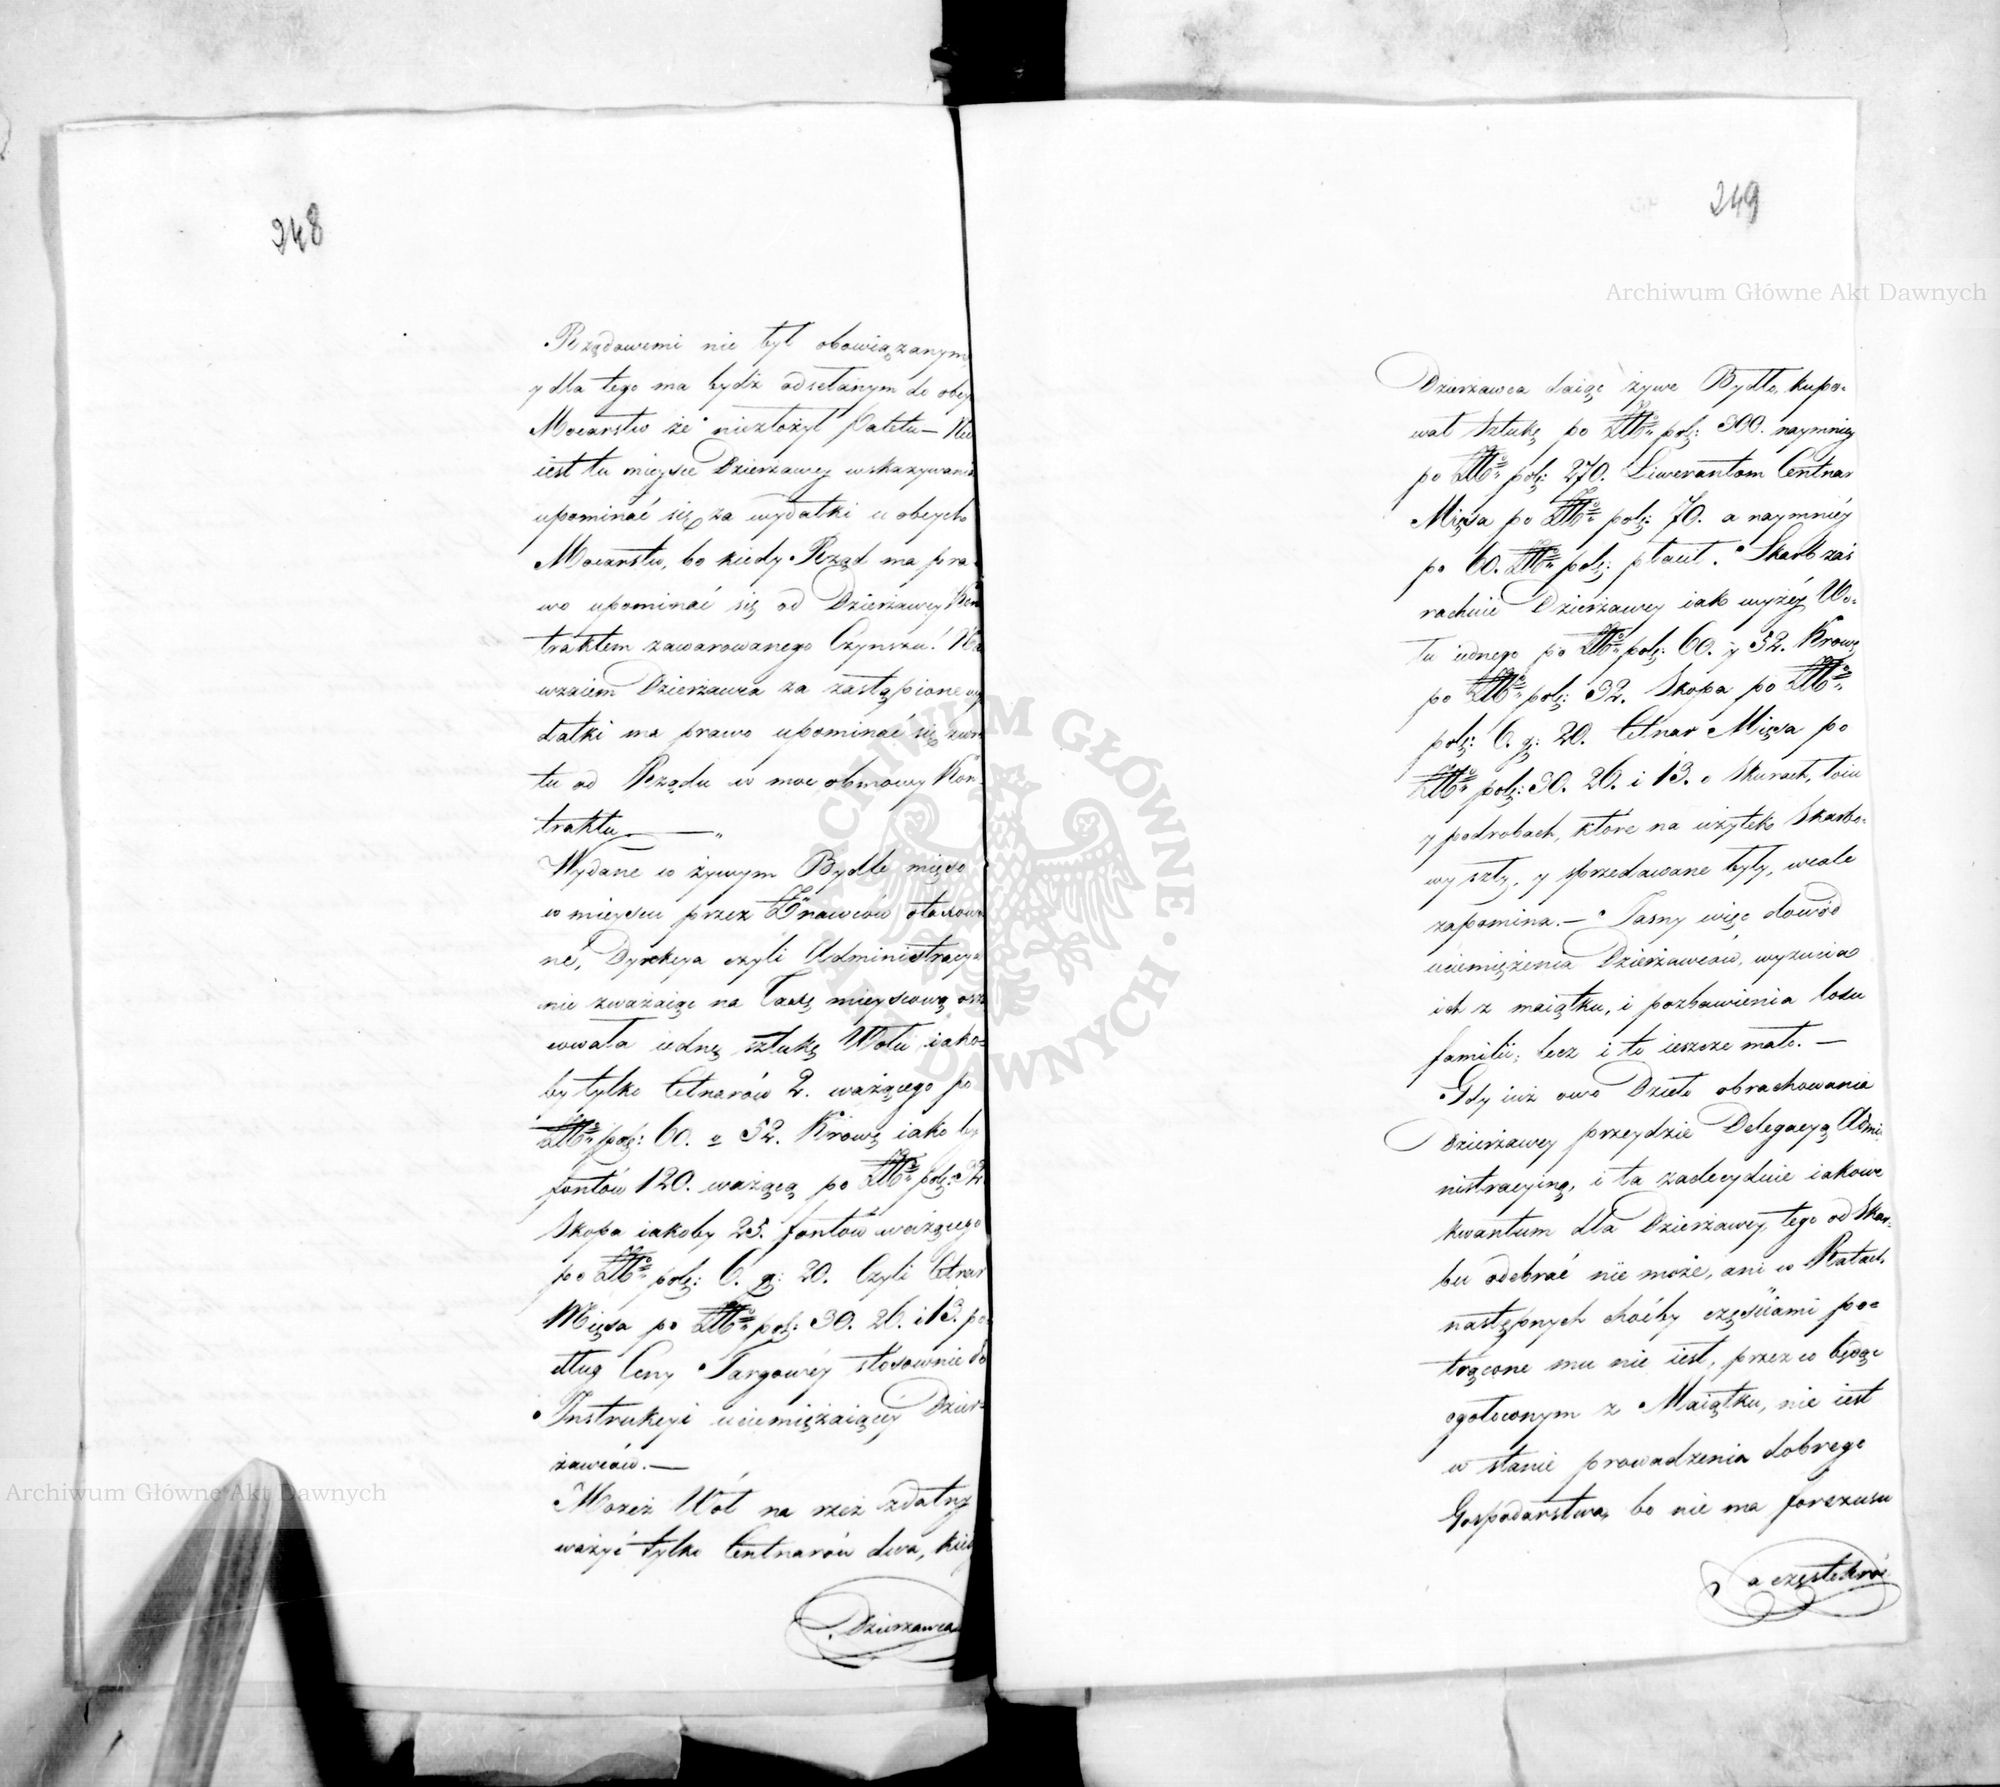 248
Rządowemi nie był obowiązanym
y dla tego ma bydź odsełanym do obcy
Mocarstw że niezłożył Paletu —
iest tu mieysce Dzierżawcy wskazywania
upominać się za wydatki u obcych
Mocarstw, bo kiedy Rząd ma pra-
wo upominać się od Dzierżawcy Kon
traktem zawarowanego Czynszu! Na
wzaiem Dzierżawca za zastąpione wy
datki ma prawo upominać się zwro
tu od Rządu w moc obmowy Kon-
traktu —
Wydane w żywym Bydle mięso
w mieyscu przez Znawców otaxowa
né, Dyrekcya czyli Administracya
nie zważaiąc na Taxę mieyscową osza
cowała iednę sztukę Wołu iako-
by tylko Ctnarów 2. ważącego po
Złt: pol: 60. a 52. Krowę iako by
fontów 120. ważącą po Złt: pol: 32
Skopa iakoby 25. fontów ważącego
po Złt: pol: 6. g: 20. Czyli Ctnar
Mięsa po Złt: pol: 30. 26. i 13. po
dług Ceny Targowéy stosownie do
Instrukcyi uciemiężaiącéy Dzier-
żawców. —
Możeż Wół na rzeź zdatny
ważyć tylko Centnarów dwa, kiedy
Dzierżawca
249
Archiwum Główne Akt Dawnych
Dzierżawca daiąc żywe Bydło, kupo-
wał Sztukę po Złt: pol: 300. naymniey
po Złt: pol: 270. Liwerantom Centnar
Mięsa po Złt: pol: 70. a naymniéy
po 60. Złt: pol: płacił. Skarb zaś
rachuie Dzierżawcy iak wyżéy Wo-
łu iednego po Złt: pol: 60. y 52. Krowę
po Złt: pol: 32. Skopa po Złt:
pol: 6. g: 20. Ctnar Mięsa po
Złt: pol: 30. 26. i 13. o Skurach, łoiu
y podrobach, które na użytek Skarbo-
wy szły, y sprzedawane były, wcale
zapomina. — Jasny więc dowód
uciemiężenia Dzierżawców, wyzucia
ich z maiątku, i pozbawienia losu
familii; lecz i to ieszcze mało. —
Gdy iuż owo Dzieło obrachowania
Dzierżawcy przeydzie Delegacyą Admi-
nistracyiną, i ta zadecyduie iakowe
kwantum dla Dzierżawcy, tego od Skar-
bu odebrać nie może, ani w Ratach
następnych choćby częściami po-
trącone mu nie iest, przez co będąc
ogołoconym z Maiątku, nie iest
w stanie prowadzenia dobrego
Gospodarstwa, bo nie ma forszusu
a częstokroć
ARCHIWUM GŁÓWNE AKT DAWNYCH
Archiwum Główne Akt Dawnych